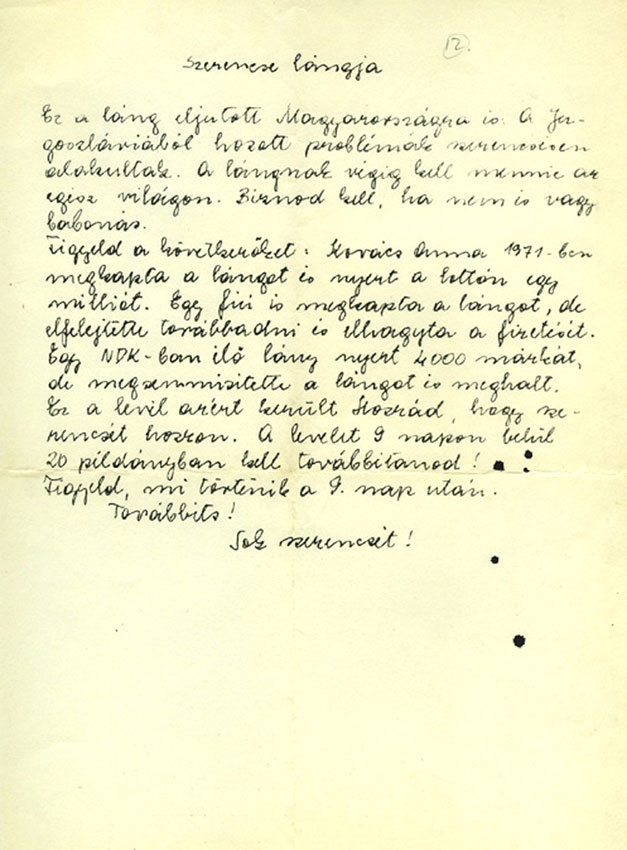 12.
Szerencse lángja
Ez a láng eljutott Magyarországra is. A Ju-
goszláviából hozott problémák szerencsésen
alakultak. A lángnak végig kell mennie az
egész világon. Biznod kell, ha nem is vagy
babonás.
Figyeld a következőket: Kovács Anna 1971-ben
megkapta a lángot és nyert a lottón egy
milliót. Egy fici is megkapta a lángot, de
elfelejtette továbbadni és elhagyta a fizetését.
Egy NDK-ban élő lány nyert 4000 márkát,
de megsemmisítette a lángot és meghalt.
Ez a levél azért került Hozzád, hogy sze-
rencsét hozzon. A levelet 9 napon belül
20 példányban kell továbbítanod!
Figyeld, mi történik a 9. nap után.
Továbbíts!
Sok szerencsét!